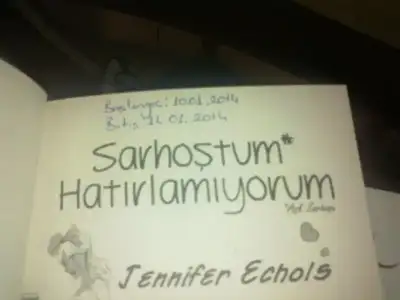 Başlangıç: 10.01.2014
Bitiş: 12.01.2014
Sarhoştum*
Hatırlamıyorum
*Aşk Sarhoşu
Jennifer Echols